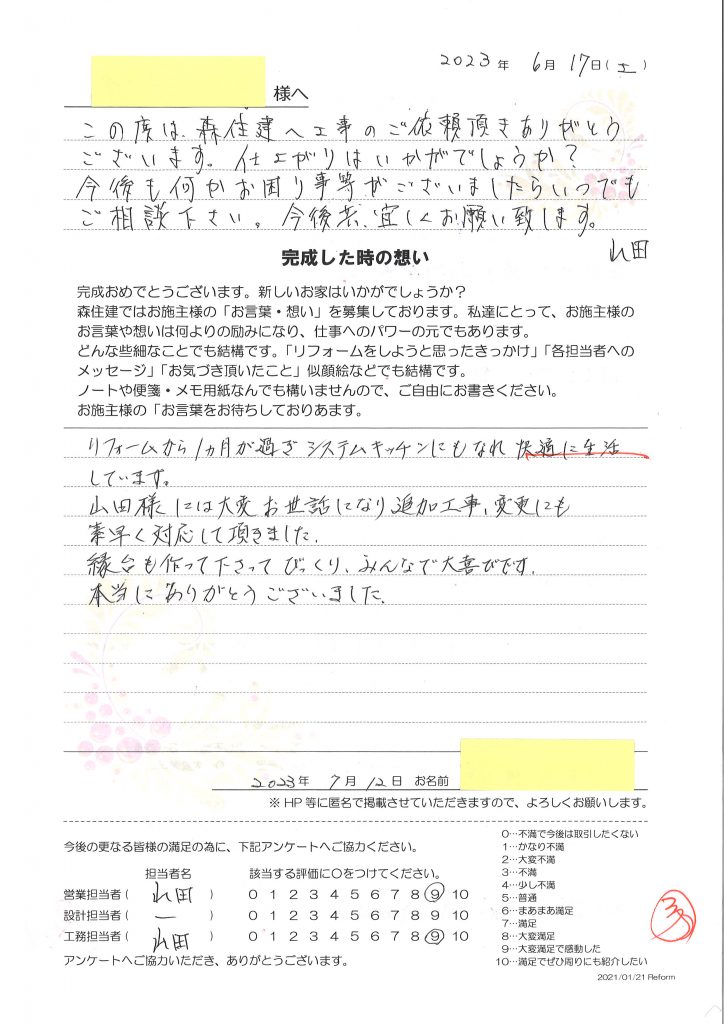 2023年 6月 17日(土)
様へ
この度は、森住建へ工事のご依頼頂きありがとう
ございます。仕上がりはいかがでしょうか?
今後も何かお困り事等がございましたらいつでも
ご相談下さい。今後共、宜しくお願い致します。
山田
完成した時の想い
完成おめでとうございます。新しいお家はいかがでしょうか?
森住建ではお施主様の「お言葉・想い」を募集しております。私達にとって、お施主様の
お言葉や想いは何よりの励みになり、仕事へのパワーの元でもあります。
どんな些細なことでも結構です。「リフォームをしようと思ったきっかけ」「各担当者への
メッセージ」「お気づき頂いたこと」似顔絵などでも結構です。
ノートや便箋・メモ用紙なんでも構いませんので、ご自由にお書きください。
お施主様の「お言葉をお待ちしておりあます。
リフォームから1ヵ月が過ぎシステムキッチンにもなれ快適に生活
しています。
山田様には大変お世話になり追加工事、変更にも
素早く対応して頂きました。
縁台も作って下さってびっくり、みんなで大喜びです。
本当にありがとうございました。
2023年 7月 12日 お名前
※HP等に匿名で掲載させていただきますので、よろしくお願いします。
今後の更なる皆様の満足の為に、下記アンケートへご協力ください。
担当者名 該当する評価に○をつけてください。
営業担当者( 山田 ) 0 1 2 3 4 5 6 7 8 9 10
設計担当者( ー ) 0 1 2 3 4 5 6 7 8 9 10
工務担当者( 山田 ) 0 1 2 3 4 5 6 7 8 9 10
アンケートへご協力いただき、ありがとうございます。
0…不満で今後は取引したくない
1…かなり不満
2…大変不満
3…不満
4…少し不満
5…普通
6…まあまあ満足
7…満足
8…大変満足
9…大変満足で感動した
10…満足でぜひ周りにも紹介したい
2021/01/21 Reform